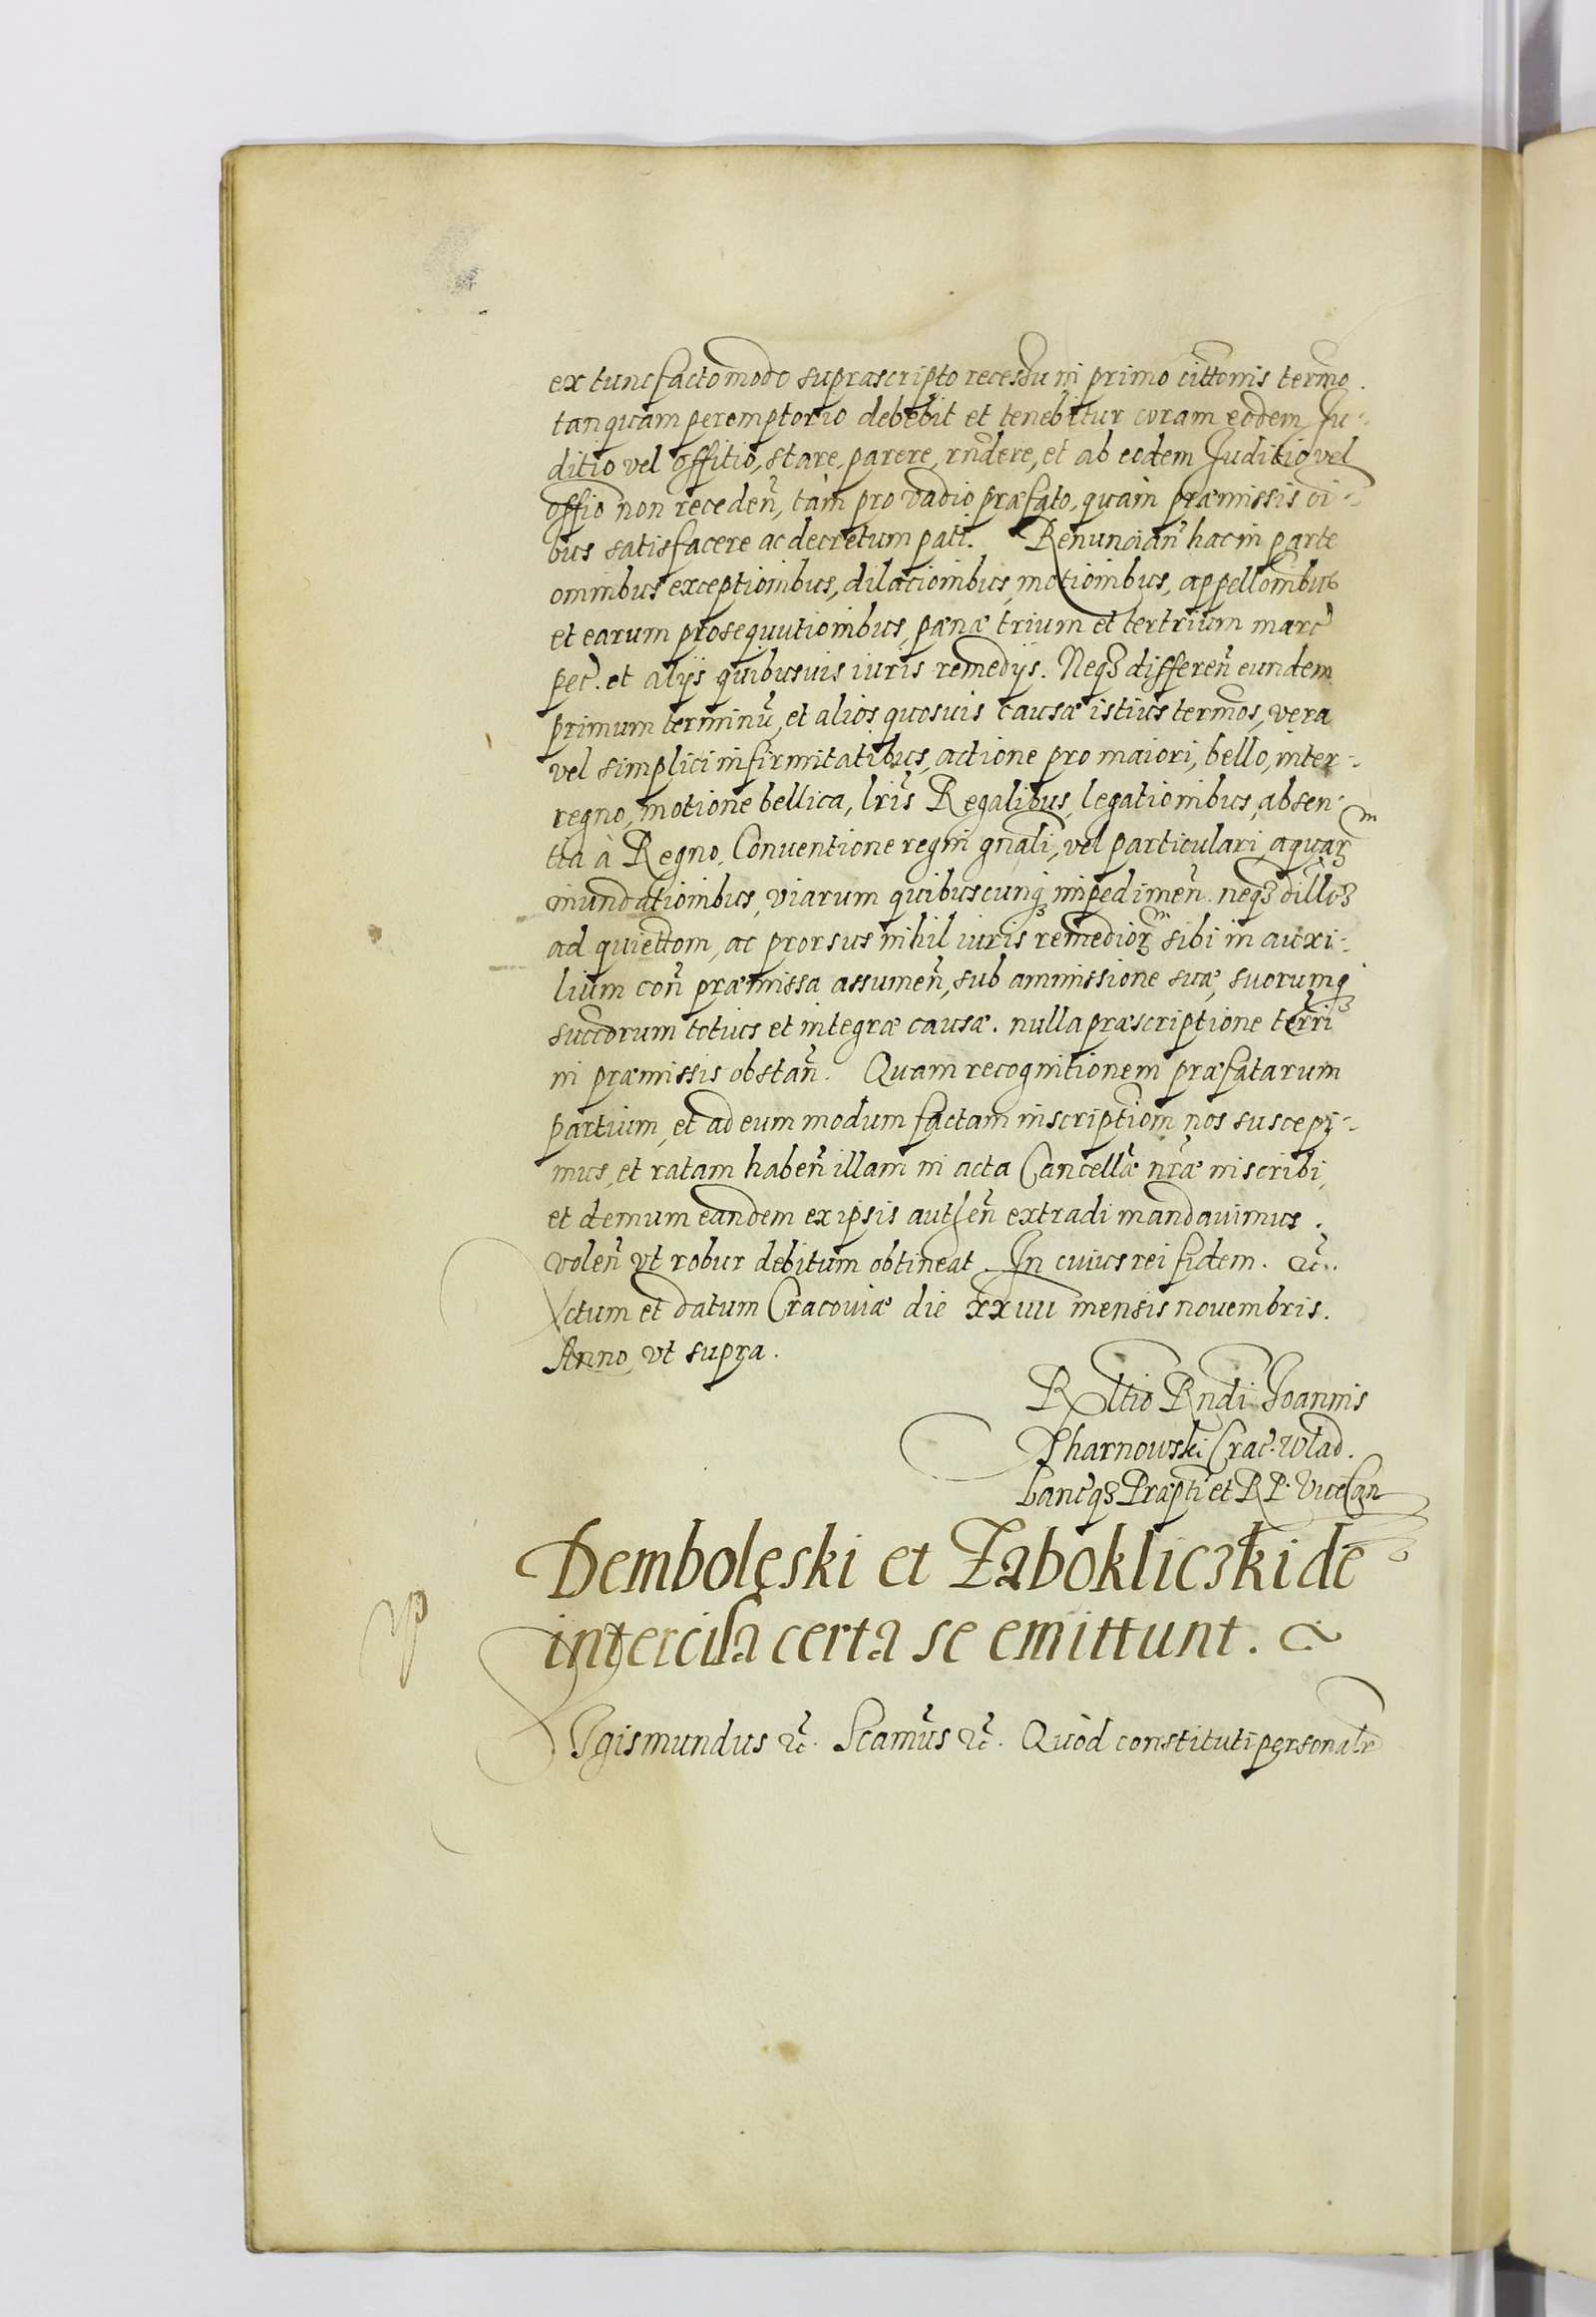 ex tunc facto modo suprascripto recessu in primo cittonis termo.
tanquam peremptorio debebit et tenebitur coram eodem Ju-
ditio vel offitio, stare, parere, rndere, et ab eodem Juditio vel
offio non receden, tàm pro vadio præfato, quàm præmissis oi-
bus satisfacere ac decretum pati. Renuncian hac in parte
omnibus exceptionibus, dilacionibus, motionibus, appellonibus
et earum prosequutionibus, pænæ trium et tertrium marc
pec. et alijs quibusvis iuris remedijs. Neqꝫ differen eundem
primum terminū, et alios quosvis causæ istius termos, vera
vel simplici infirmitatibus, actione pro maiori, bello, inter-
regno, motione bellica, lris Regalibus, legationibus, absen-
tia à Regno, Conventione regni gnali, vel particulari, aquaꝝ
inundationibus, viarum quibuscunqꝫ impedimen. neqꝫ dilloꝫ
ad quiettom, ac prorsus nihil iuris remedioꝝ sibi in auxi-
lium con præmissa assumen, sub ammissione suæ, suorumqꝫ
succorum totius et integræ causæ. nulla præscriptione terri
in præmissis obstan. Quam recognitionem præfatarum
partium, et ad eum modum factam inscriptiom nos suscepi-
mus, et ratam haben illam in acta Cancellæ nræ inscribi,
et demum eandem ex ipsis authen extradi mandavimus.
volen vt robur debitum obtineat. In cuius rei fidem. &c.
Actum et datum Cracoviæ die xxviii mensis novembris.
Anno vt supra.
Rltio Rndi Joannis
Tharnowski Crac. Wlad.
Lancqꝫ Præpti et R P. ViceCan
Demboleski et Zabokliczki de
intercisa certa se emittunt.
Sgismundus &c. Scamus &c. Quòd constituti personalr